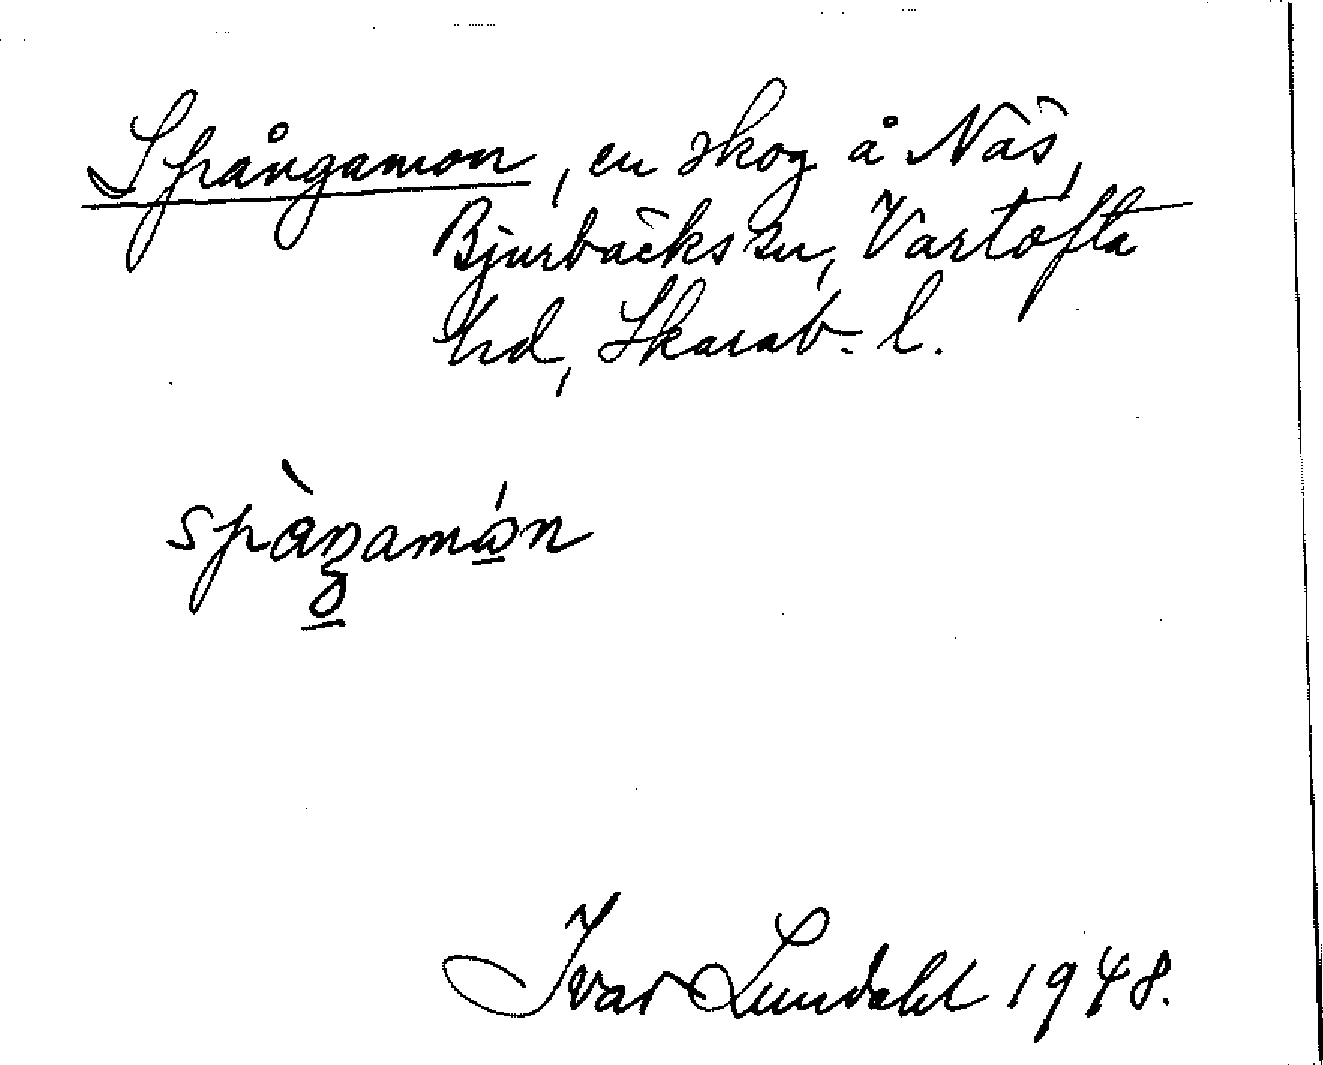 Spångamon, en skog å Näs,
Bjurbäcks sn, Vartofta
hd, Skarab. l.
spàŋamón
Ivar Lundahl 1948.